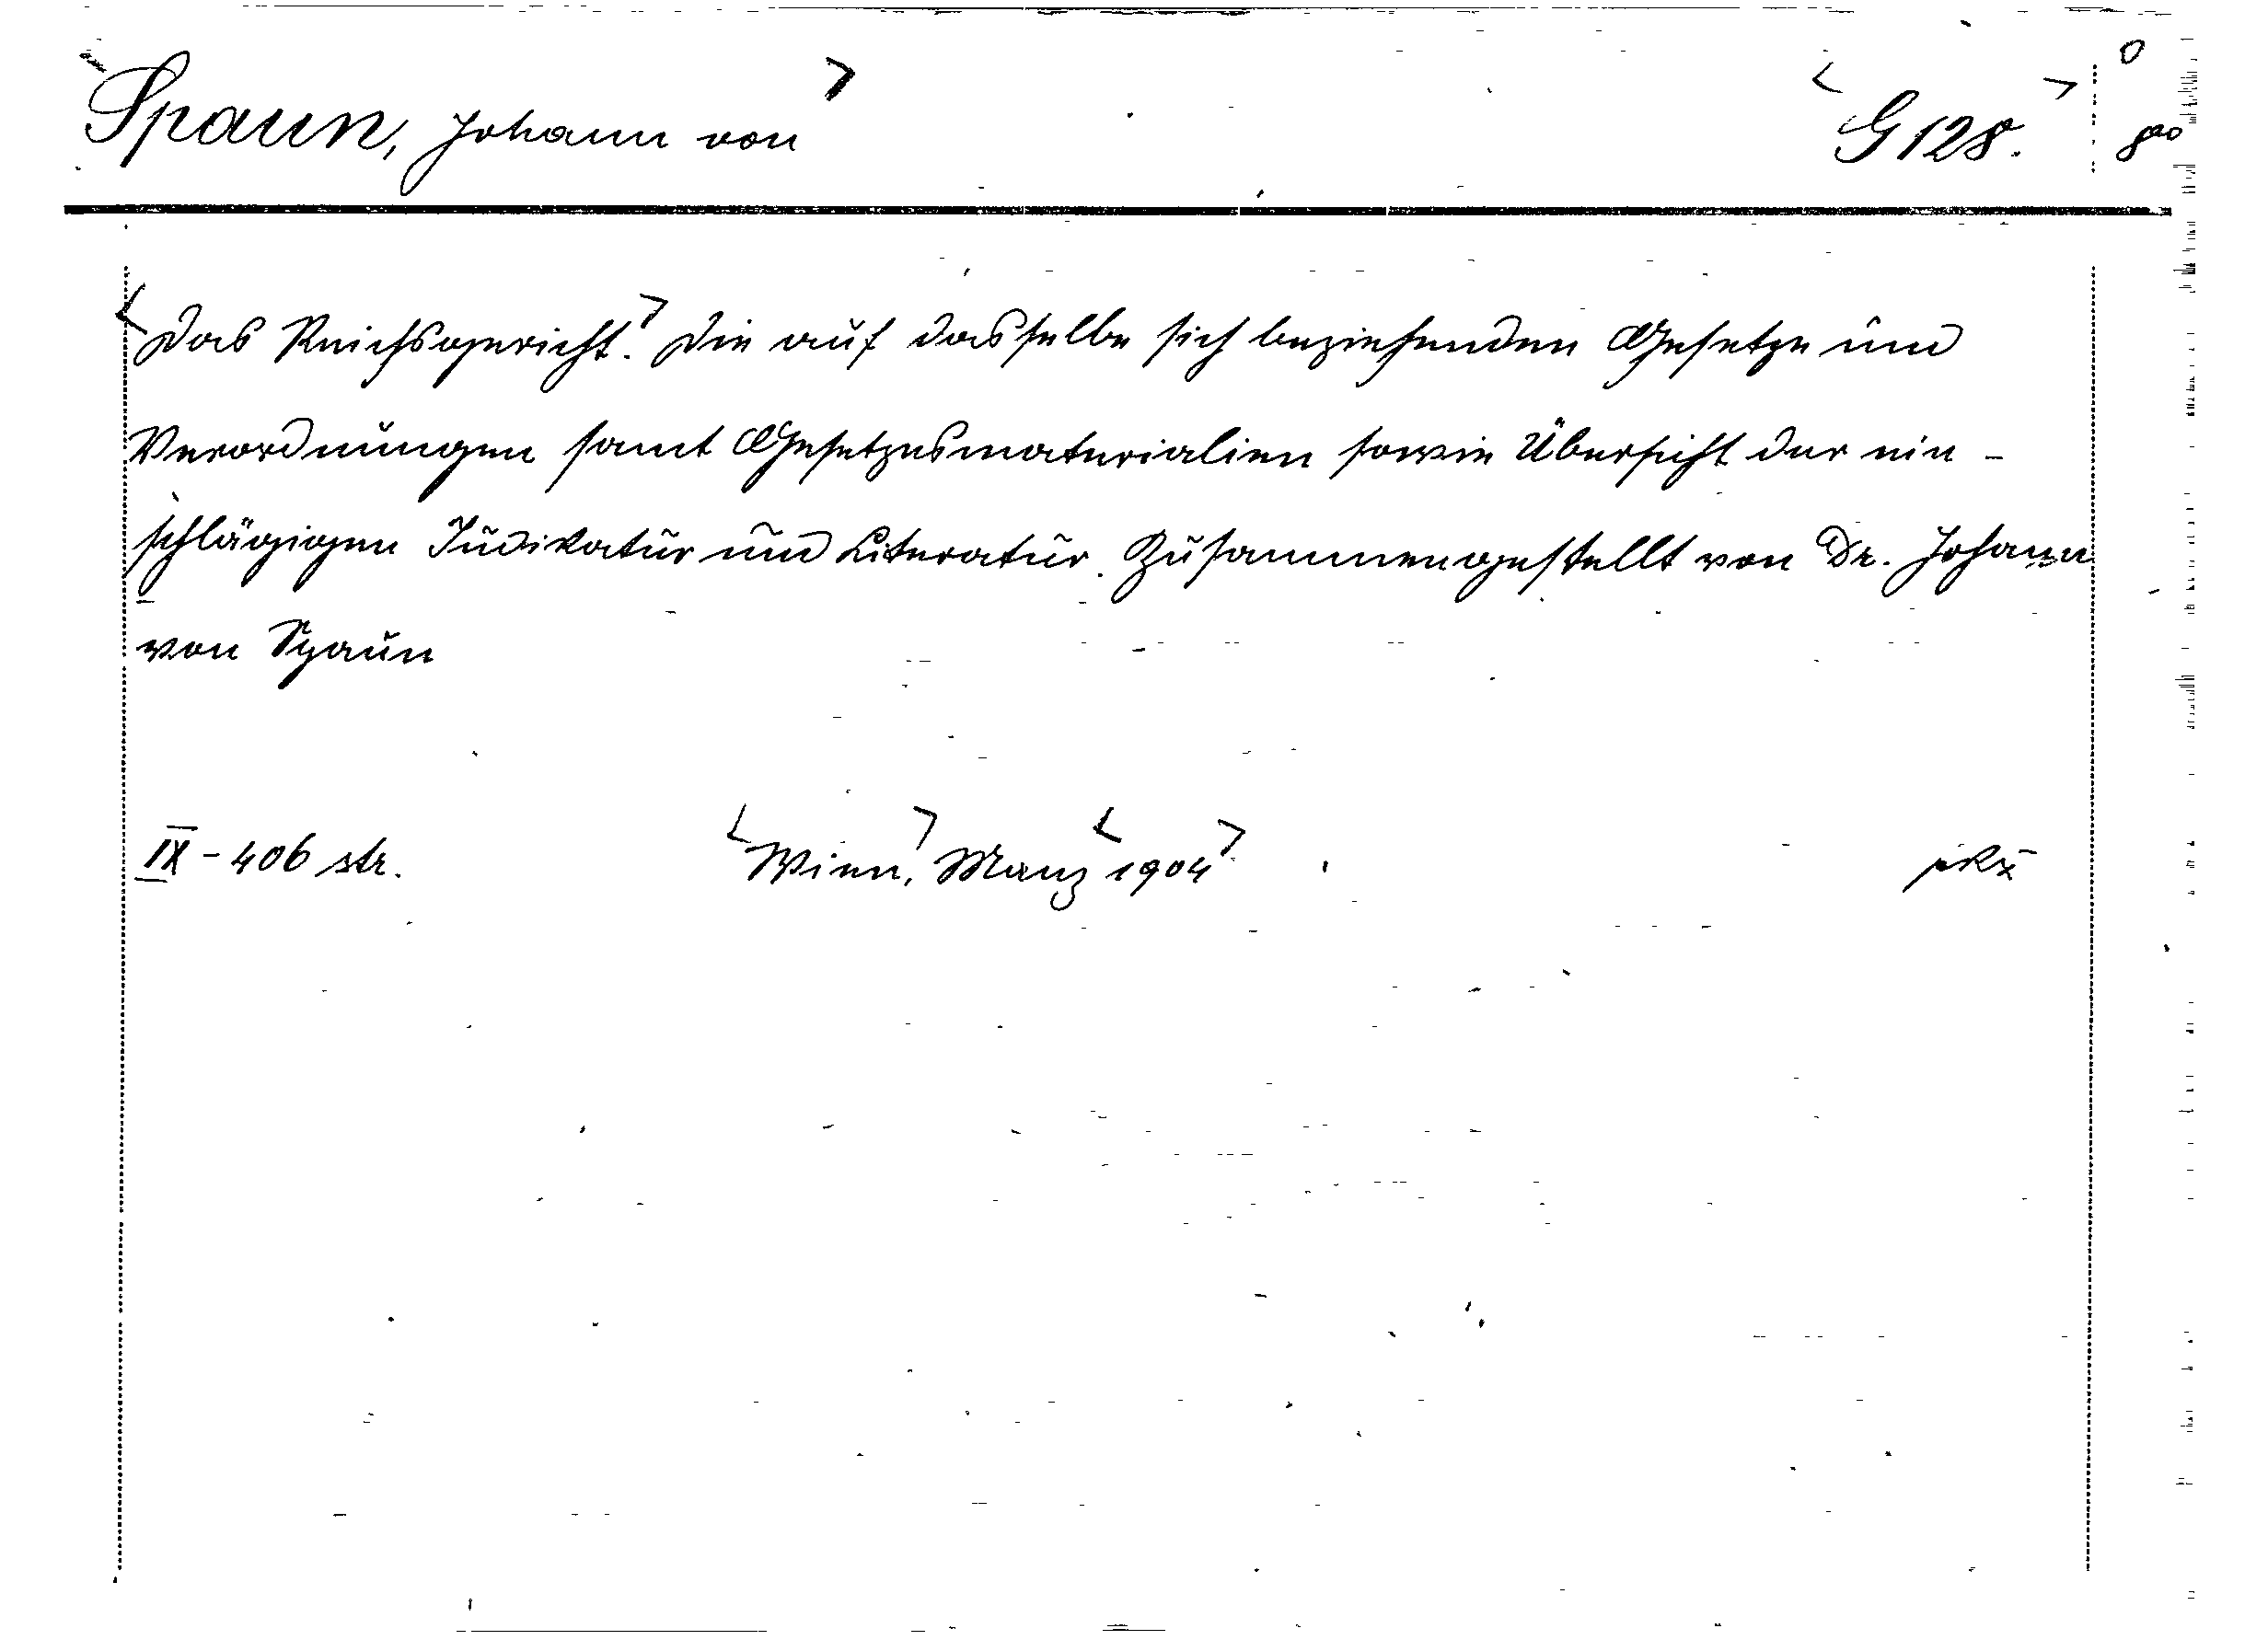 Spaun, Johann von G 128. 8ao
Das Reichsgericht. Die auf dasselbe sich beziehenden Gesetze und
Verordnungen samt Gesetzesmaterialien sowie Übersicht der ein-
schlägigen Judikatur und Literatur. Zusammengestellt von Dr. Johann
von Spaun
IX - 406 str. Wien, Manz 1904